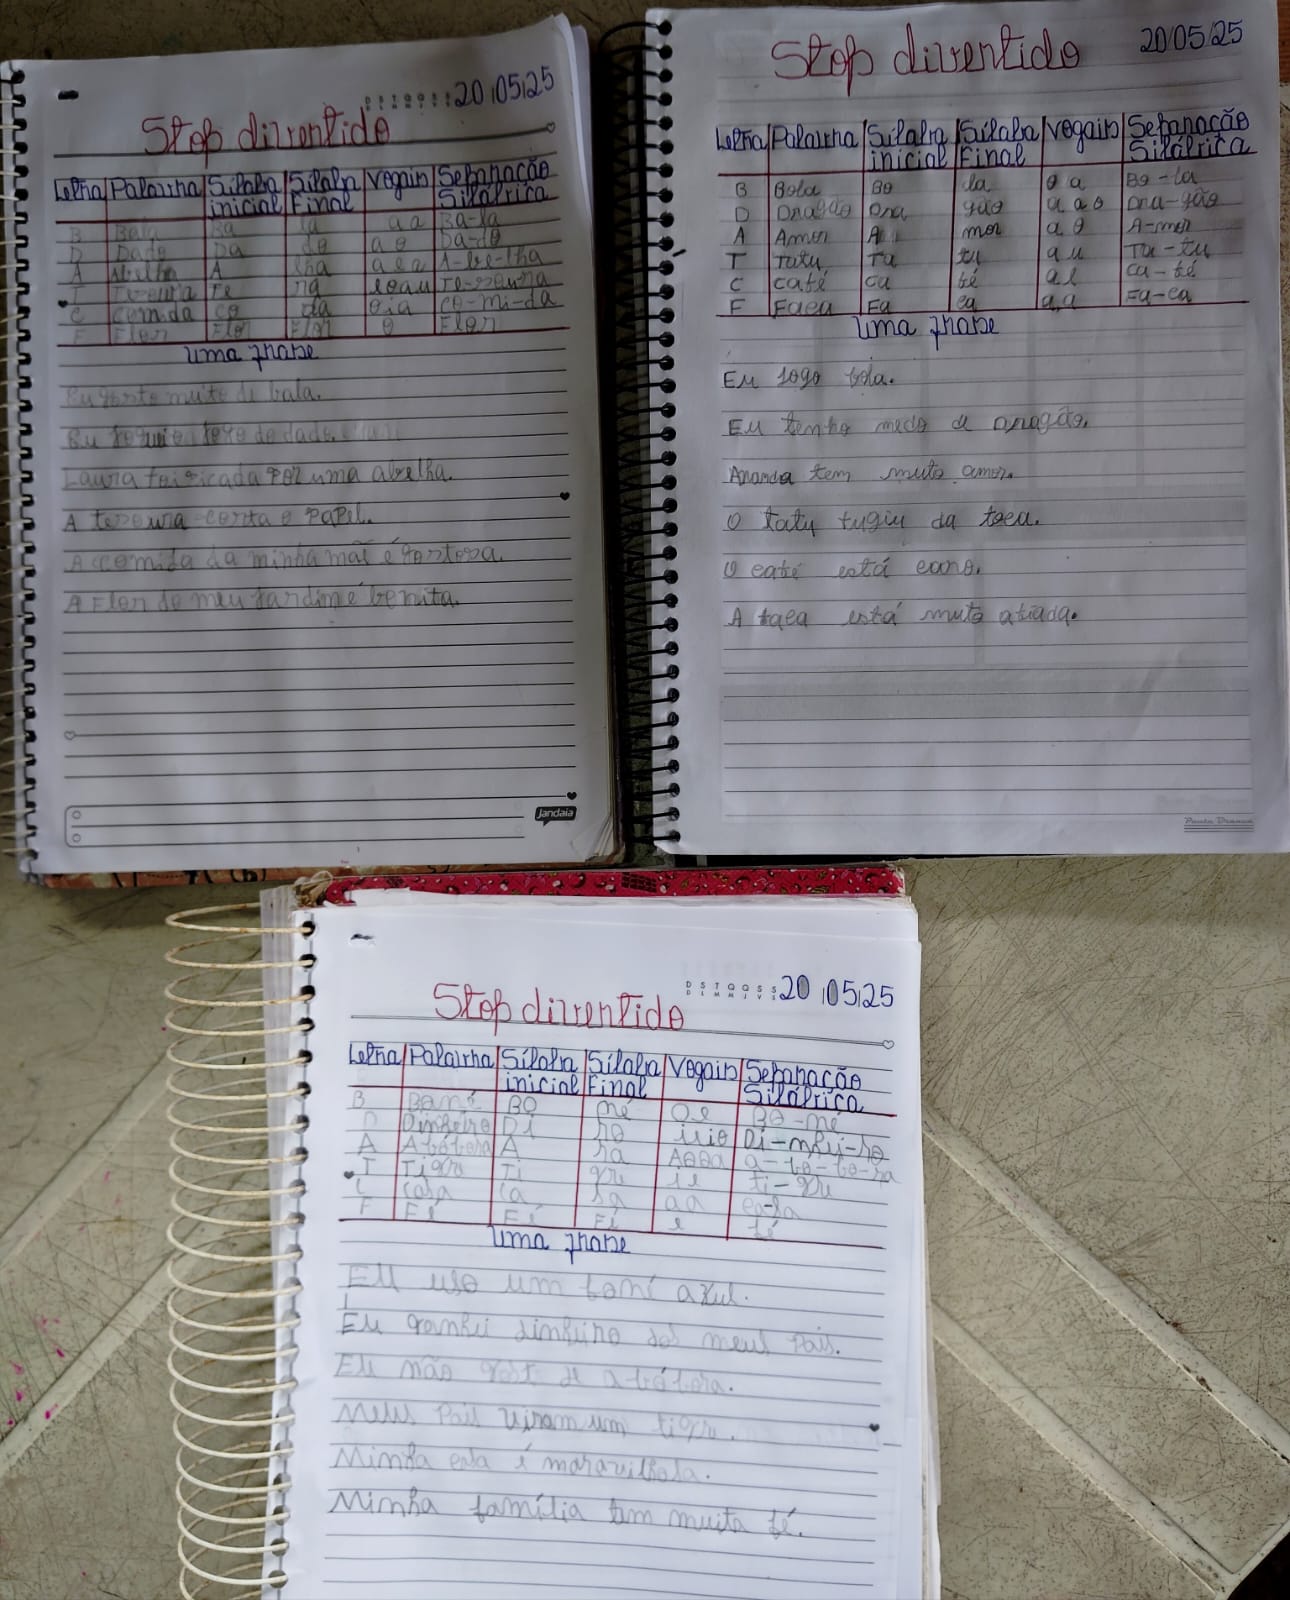 20/05/25
Stop divertido
Letra Palavra Sílaba inicial Sílaba Final Vogais Separação Silábrica
B Bala Ba la aa Ba-la
D Dado Da do ao Da-do
A Abelha A lha aea A-be-lha
T Tesoura Te ra eoau Te-soura
C Comida co da oia co-mi-da
F Flor Flor Flor o Flor
uma frase
Eu gosto muito de bala.
Eu dado.
Laura foi picada por uma abelha.
A tesoura corta o papel.
A comida da minha mãe é gostosa.
A Flor do meu jardim é bonita.
jandaia
Stop divertido 20/05/25
Letra Palavra Sílaba inicial Sílaba Final Vogais Separação Silábrica
B Bola Bo la o a Bo-la
D Dragão Dra gão a a o Dra-gão
A Amor A mor a o A-mor
T Tatu Ta tu a u Ta-tu
C café ca fé a e ca-fé
F Faca Fa ca a a Fa-ca
uma frase
Eu jogo bola.
Eu tenho medo de dragão.
Ananda tem muito amor.
O tatu fugiu da toca.
O café está caro.
A faca está muito afiada.
D S T Q Q S S 20/05/25
Stop divertido
Letra Palavra Sílaba inicial Sílaba Final Vogais Separação Silábrica
B Boné Bo né oe Bo-né
D Dinheiro Di ro ieio Di-nhei-ro
A Abóbora A ra Aooa a-bó-bo-ra
T Tigre Ti gre ie ti-gre
C casa ca sa aa ca-sa
F Fé Fé Fé e fé
uma frase
Eu uso um boné azul.
Eu ganhei dinheiro dos meus pais.
Ele não gost de abóbora.
Meus pais viram um tigre.
Minha casa é maravilhosa.
Minha família tem muita fé.